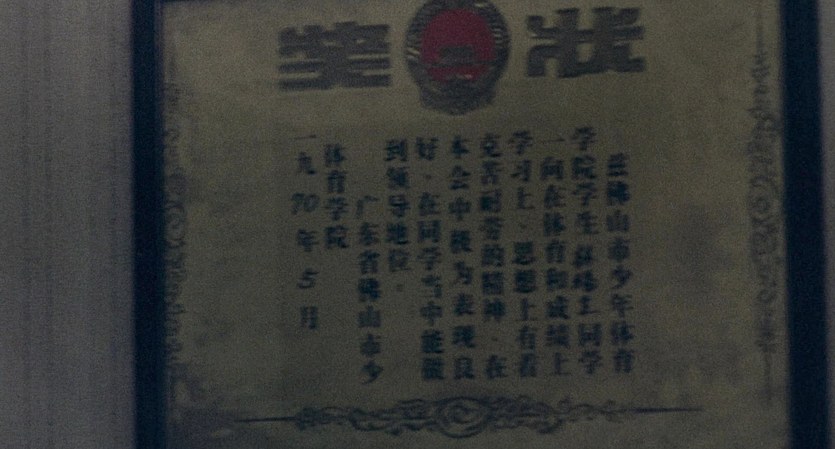 奖状
兹佛山市少年体育
学院学生同学
一向在体育和成绩上
学习上、思想上有着
克苦耐劳的精神、在
本会中极为表现良
好、在同学当中能做
到领导地位。
广东省佛山市少
体育学院
一九70年5月